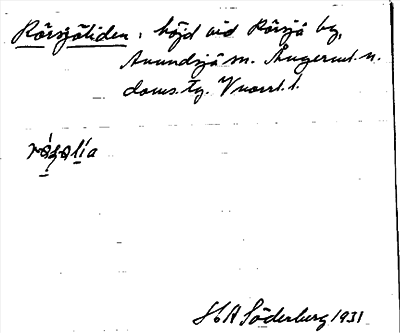 Rörsjöliden, höjd vid Rörsjö by,
Anundsjö sn. Ångerml. n.
doms.tg. Vnorrl. l.
H A Söderberg 1931